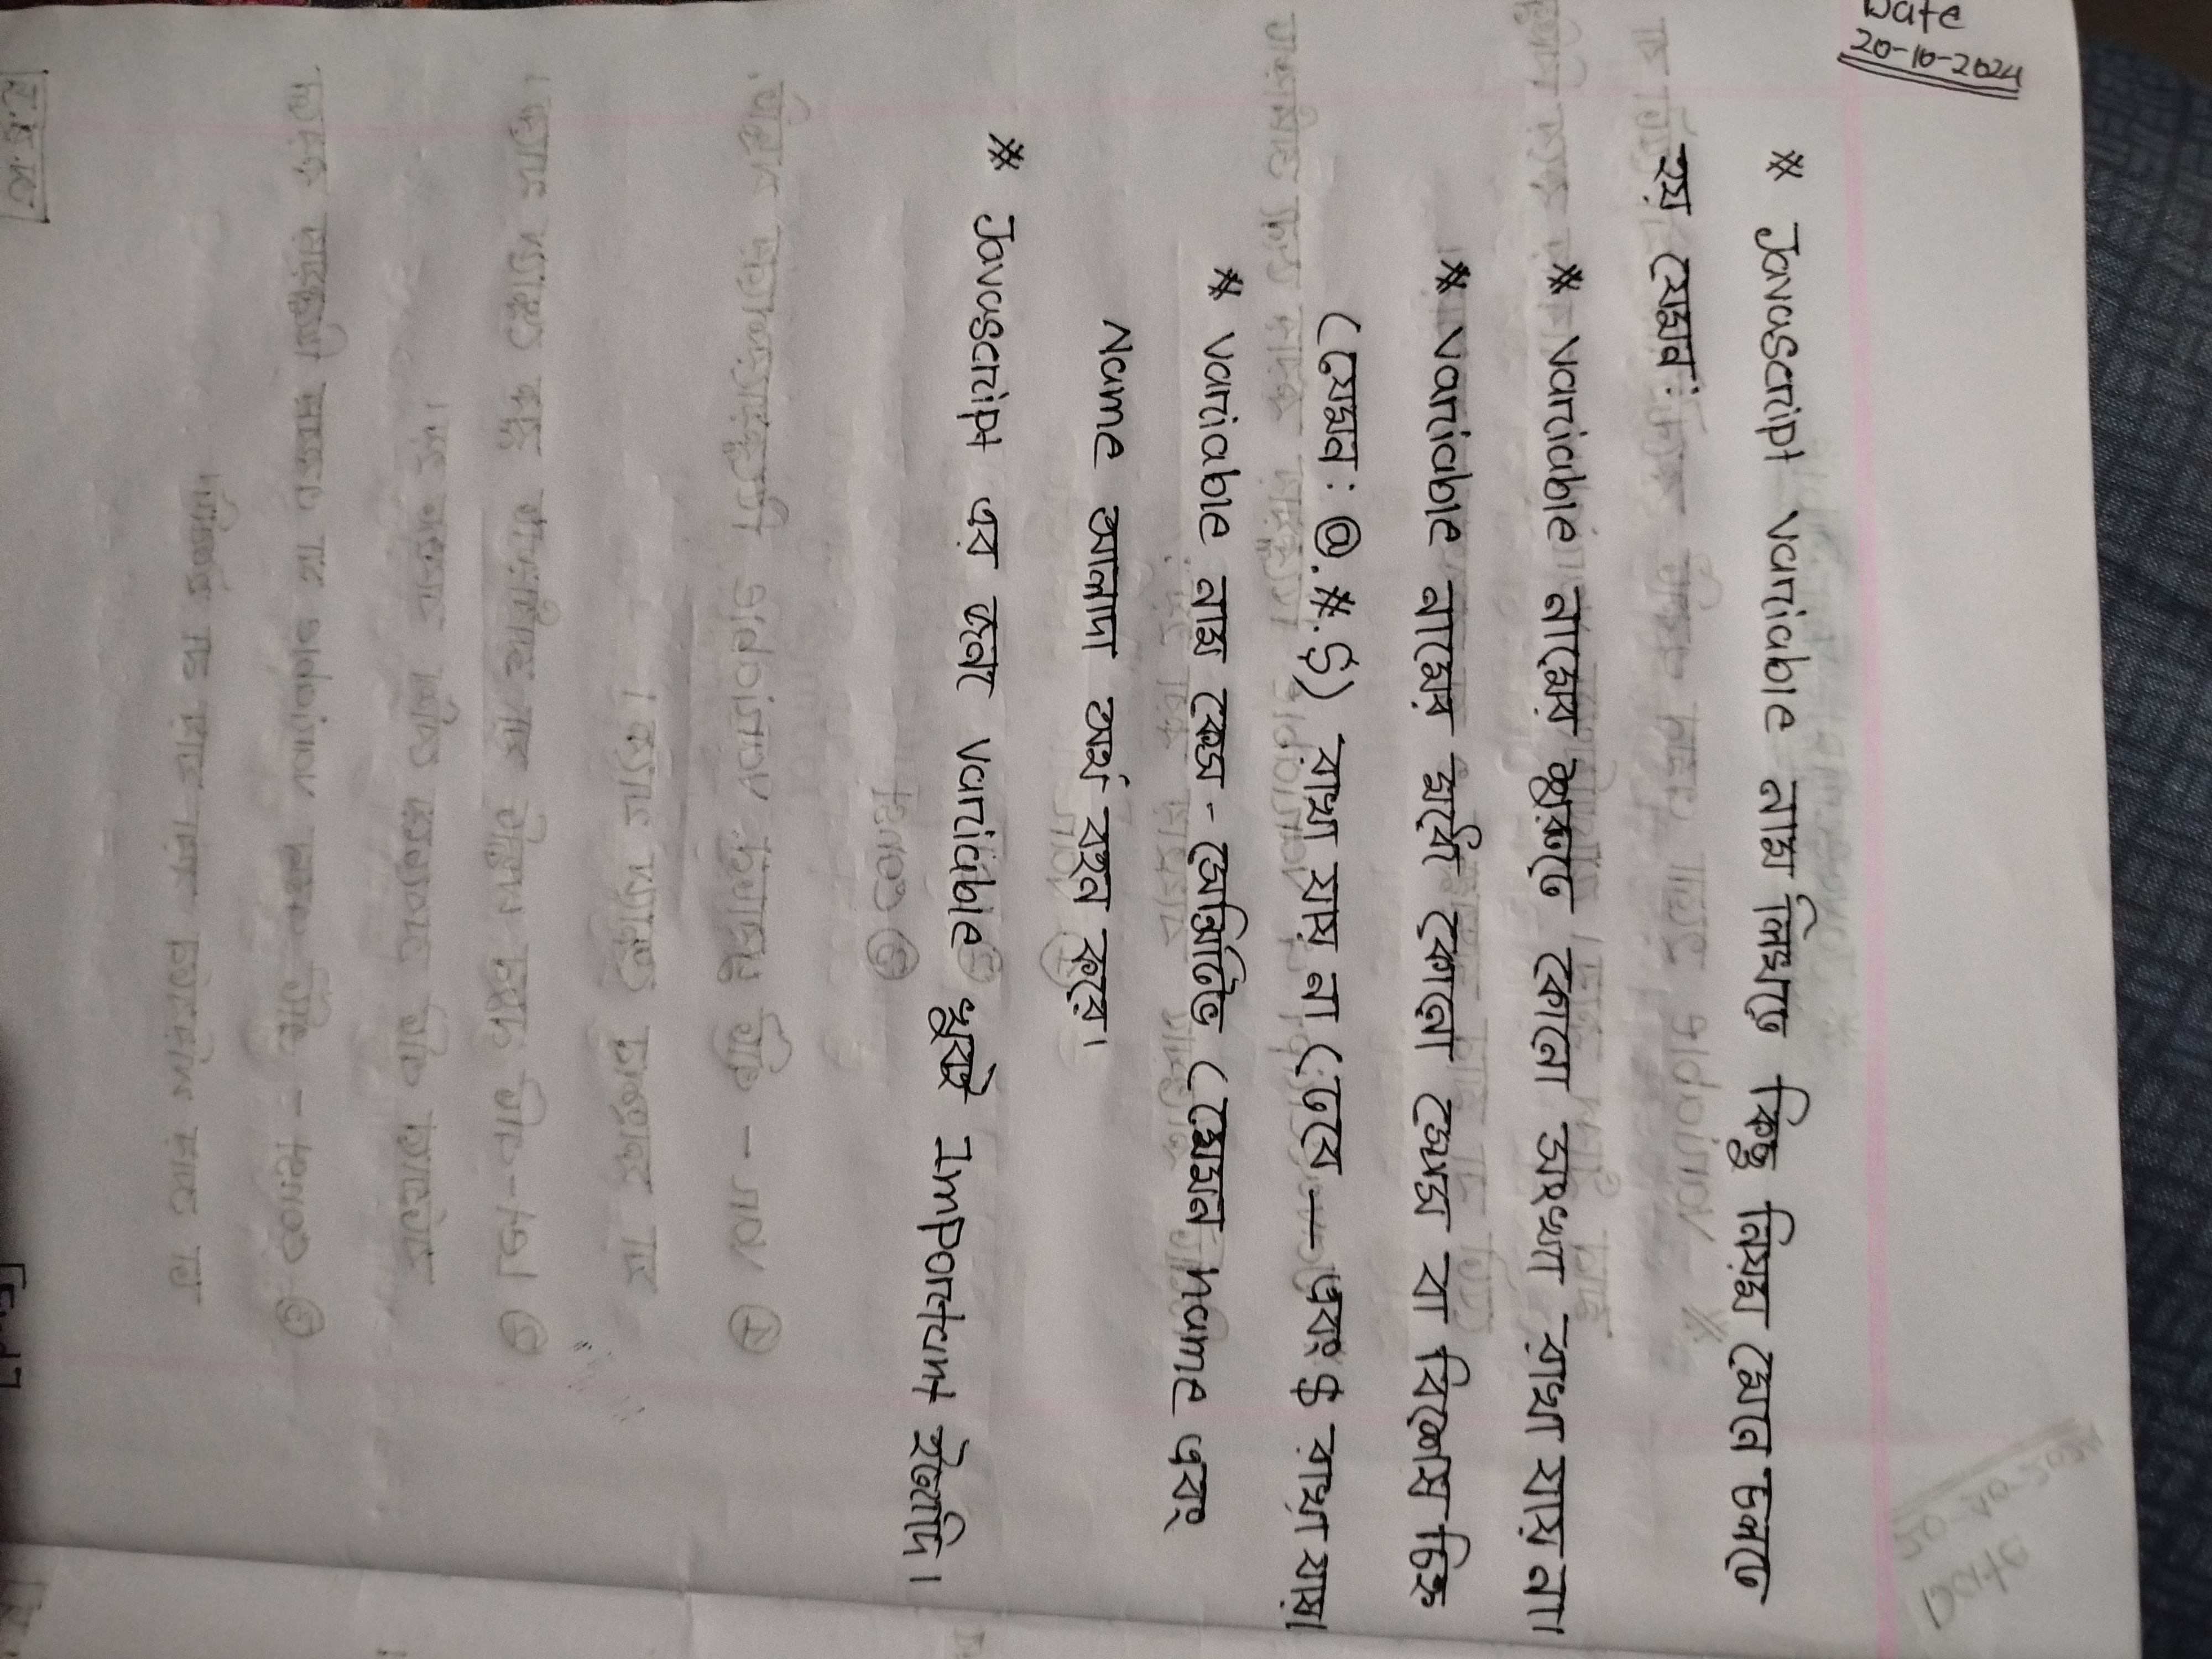 Date
20-10-2024
* Javascript variable নাম লিখতে কিছু নিয়ম মেনে চলতে
হয় যেমন:
* variable নামের শুরুতে কোনো সংখ্যা রাখা যায় না।
* variable নামের মধ্যে কোনো স্পেস বা বিশেষ চিহ্ন
(যেমন: @.#.$) রাখা যায় না (তবে — এবং $ রাখা যায়।
* variable নাম কেস - সেন্সিটিভ (যেমন name এবং
Name আলাদা অর্থ বহন করে।
* Javascript এর জন্য variable খুবই Important ইত্যাদি।